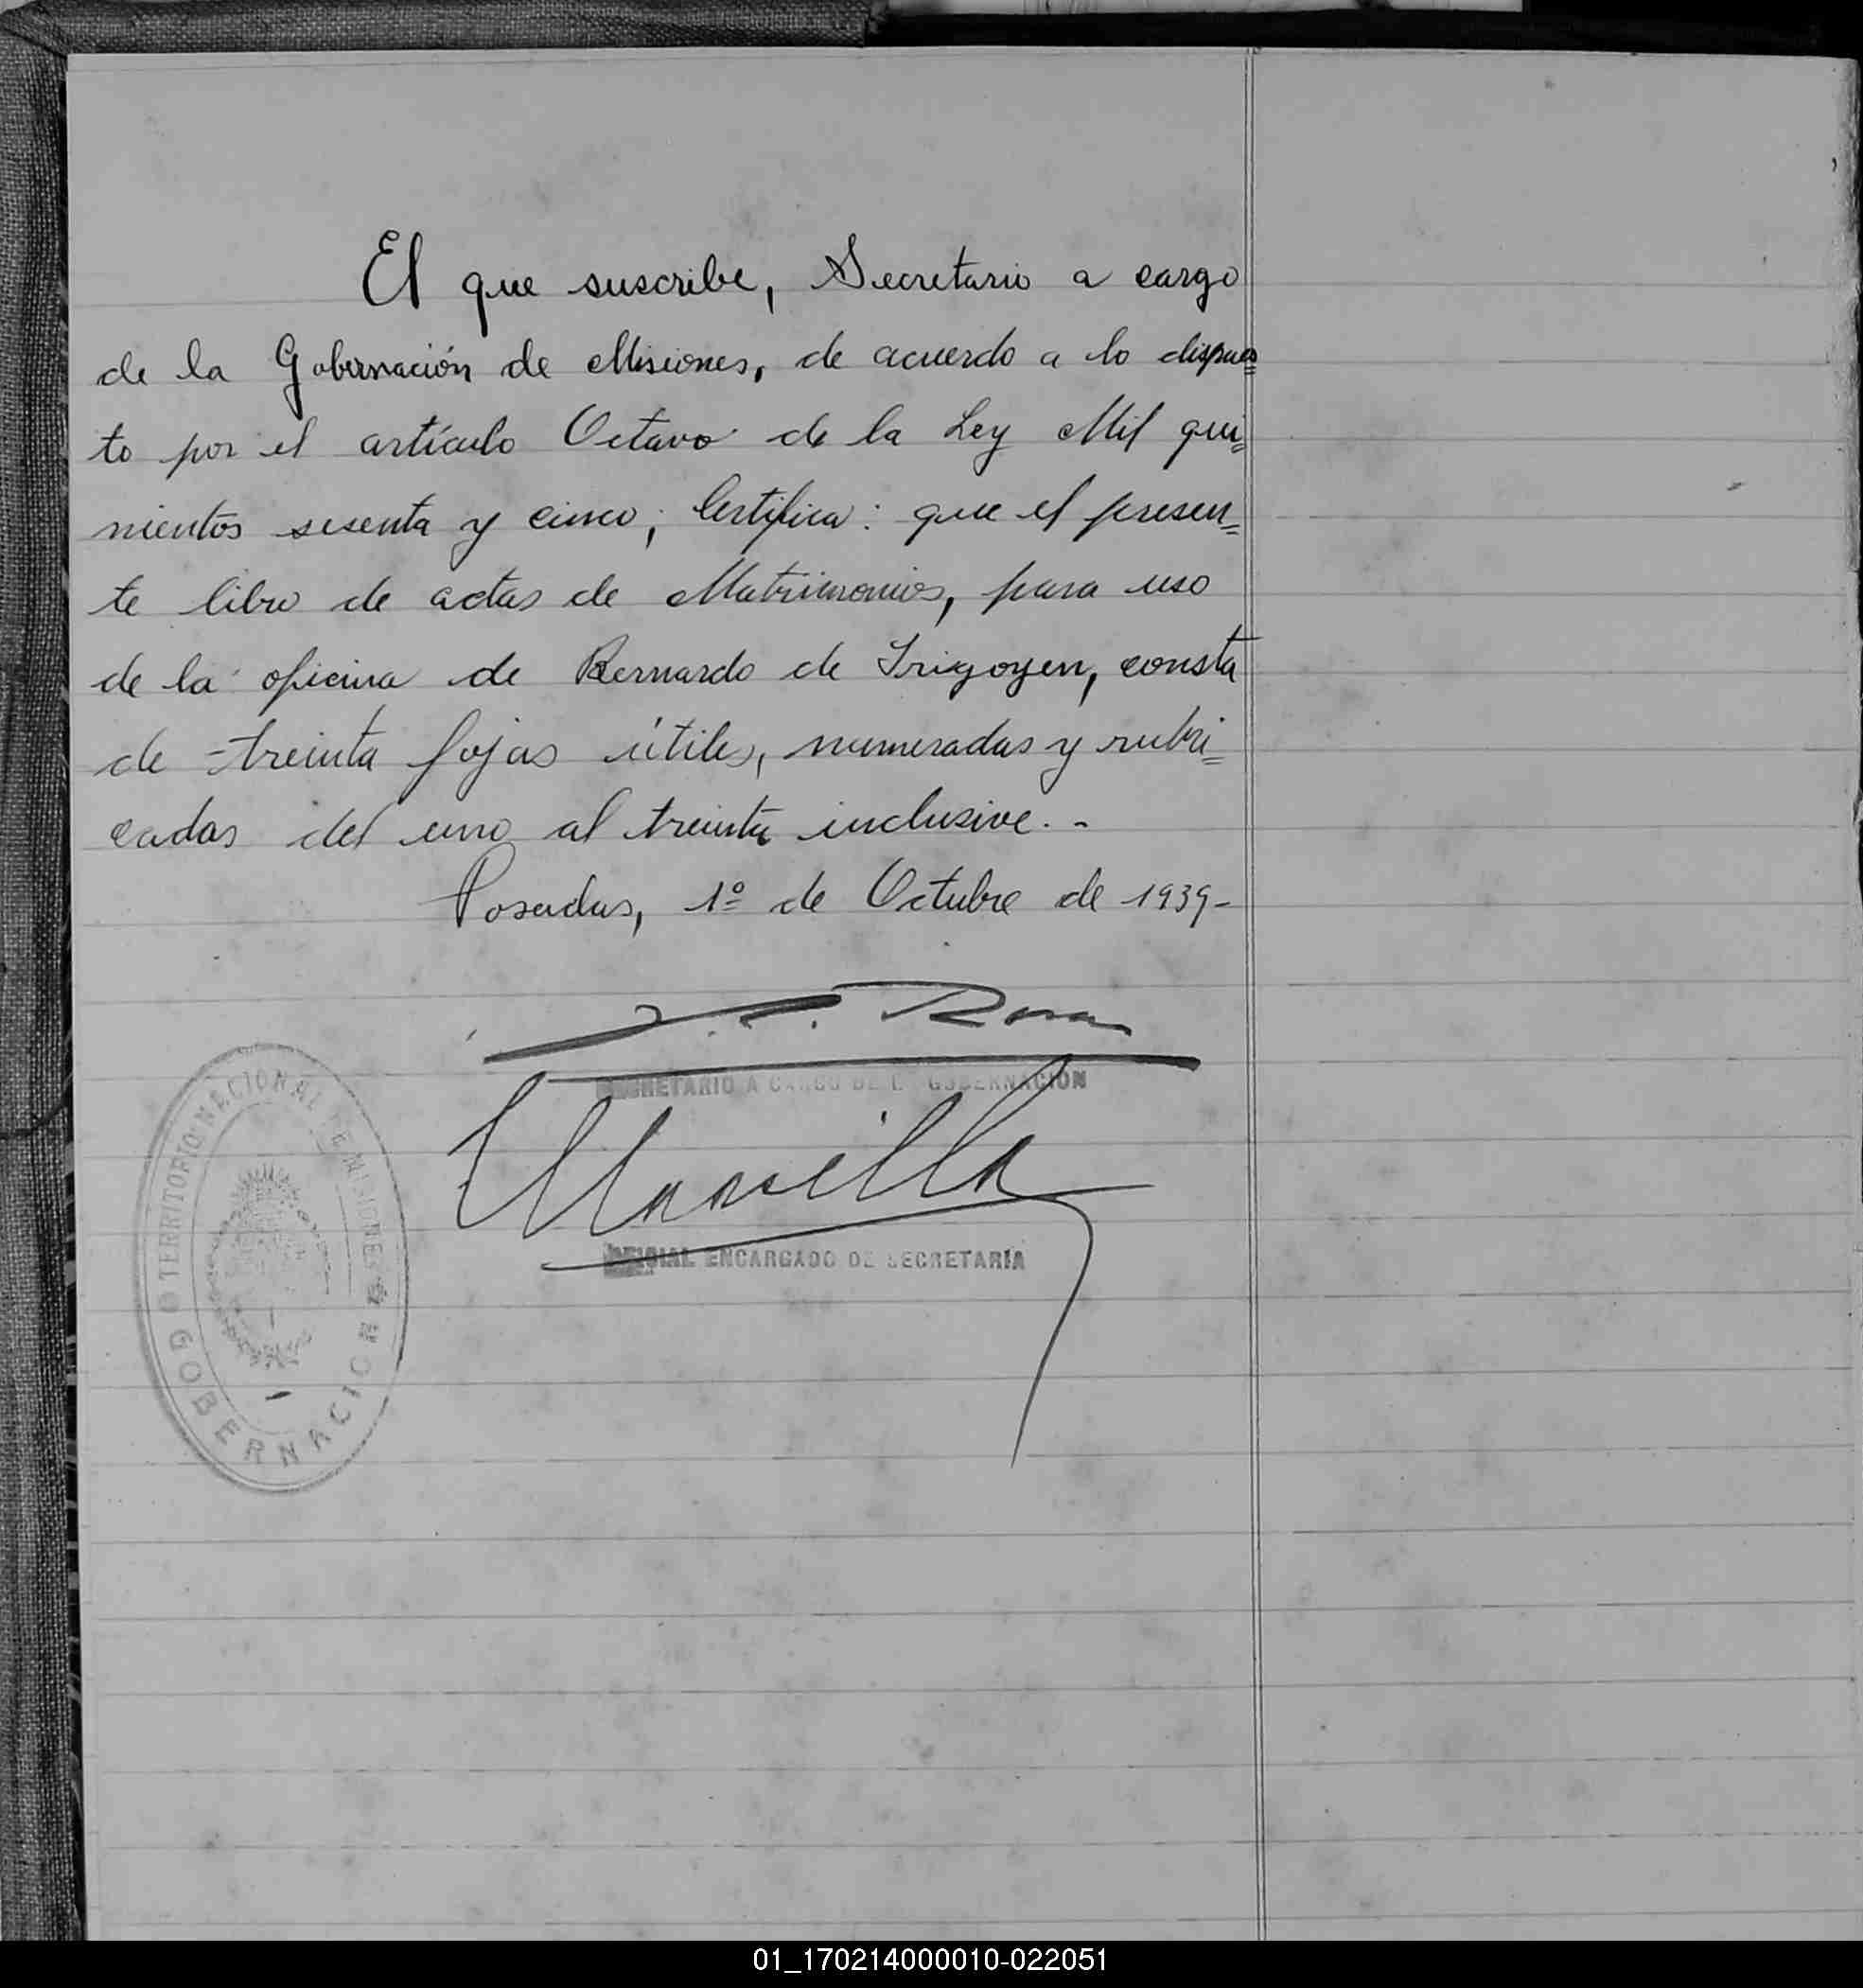 El que suscribe, Secretario a cargo
de la Gobernación de Misiones, de acuerdo a lo dispues=
to por el artículo Octavo de la Ley Mil qui=
nientos sesenta y cinco; Certifica: que el presen=
te libro de actas de Matrimonios, para uso
de la oficina de Bernardo de Irigoyen, consta
de treinta fojas útiles, numeradas y rubri=
cadas del uno al treinta inclusive.-
Posadas, 1º de Octubre de 1939-
SECRETARIO A CARGO DE LA GOBERNACIÓN
OFICIAL ENCARGADO DE SECRETARÍA
TERRITORIO NACIONAL DE MISIONES
GOBERNACION
01_170214000010-022051